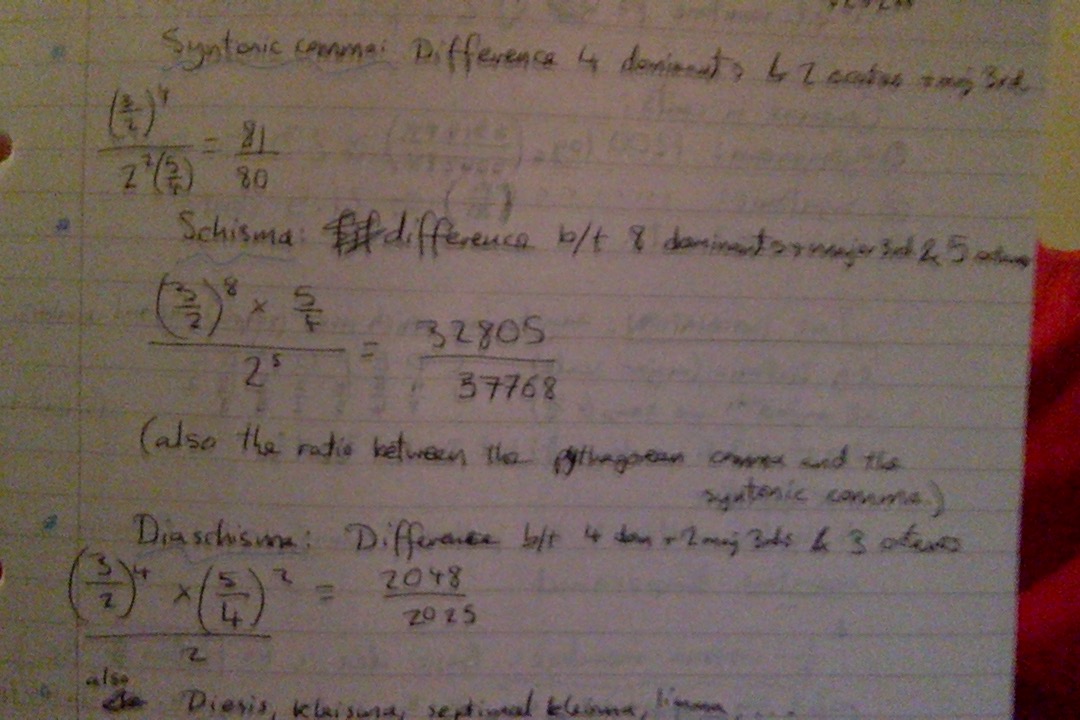 Syntonic comma: Difference 4 dominants & 2 octaves + maj 3rd
(3/2)^4 / 2^2(5/4) = 81/80
Schisma: difference b/t 8 dominants + major 3rd & 5 octaves
(3/2)^8 × 5/4 / 2^5 = 32805/37768
(also the ratio between the pythagorean comma and the
syntonic comma.)
Diaschisma: Difference b/t 4 dom + 2 maj 3rds & 3 octaves
(3/2)^4 × (5/4)^2 / 2 = 2048/2025
also
Diesis, kleisma, septimal kleisma, limma,